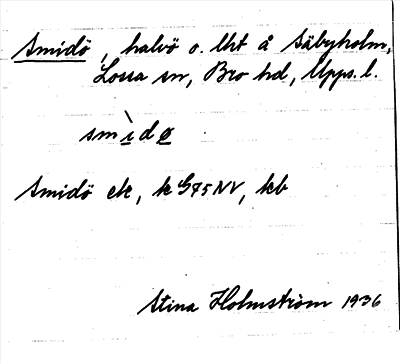 Smidö, halvö o. lht å Säbyholm,
Lossa sn, Bro hd, Upps. l.
smìdø
Smidö ek, k G75NV, kb
Stina Holmström 1936